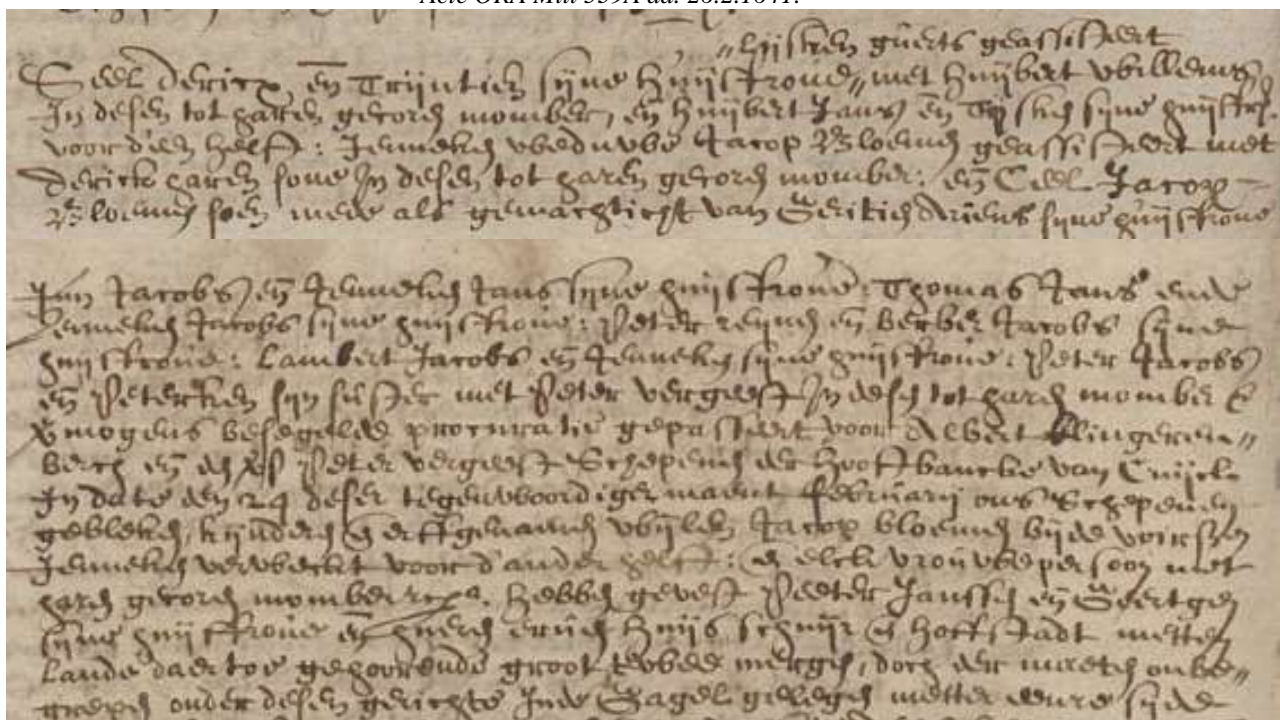 Acte ORA Mill 339A dd. 26.2.1641.
"Lijsken gûerts geassisteert
Ceel Dericx, en Trijntien sijne huijsfroue" met huijbert Willems,
In desen tot haren gecoren momber, en huijbert Jans en Tijsken sijne huijsfr.
voor d'een helft: Jenneken weduwe Jacop Bloemen geassisteert met
Derick haren sone In desen tot haren gecoren momber: en Ceel Jacop
Bloemen soen mede als gemachticht van Geritien Ariens sijne huijsfroue
Jan Jacobs en Jenneken Jans sijne huijsfroue: Thomas Jans ende
Jenneken Jacobs sijne huijsfroue: Peter en Berber Jacobs sijne
huijsfroue: Lambert Jacobs en Jenneken sijne huijsfroue: Peter Jacobs
en Peterken sijn suster met Peter vergeest In desen tot haren momber
vermogens besegelde procuratie gepasseert voor Albert Clingeren"
berch en Peter vergeest Schepenen der hooftbancke van Cuijck
In date den 24 deser tegenwoordiger maent februarij ons Schepenen
gebleken, kijnderen en erffgenamen wijlen Jacop bloemen bijde voirschr.
Jenneken verweckt voor d'ander helft: en elck vrouwepersoon met
haren gecoren momber etc. hebben gevest Peeter Janssen en Geertgen
sijne huijsfroue en hueren erven huijs schuijr en hoffstadt metten
Lande daertoe gehoorende groot twee mergen, doch der maeten onbe"
grepen onder desen gerichte Inde Hagel gelegen metter eenre sijde